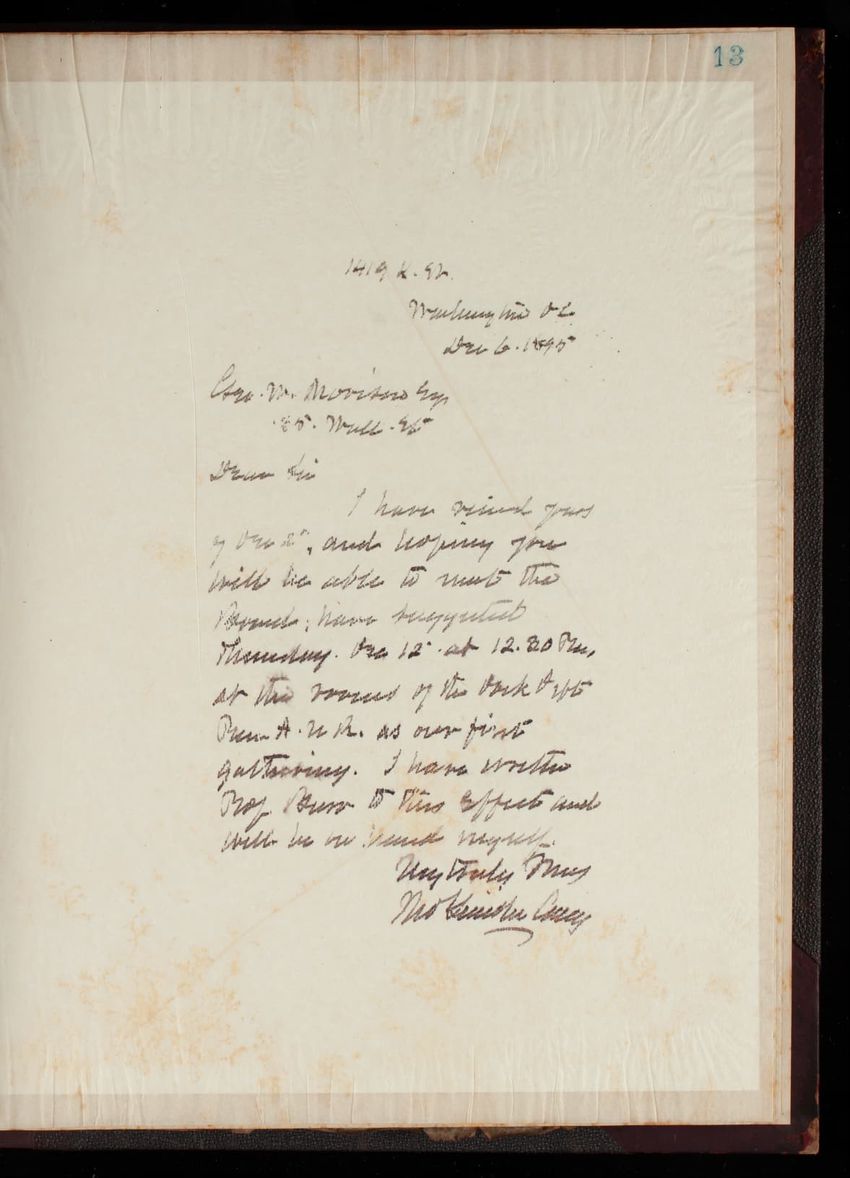 13
1419 K. St.
Washington D.C.
Dec 6. 1895
Geo. W. Morison Esq
35. Wall. St
Dear Sir
I have recied yours
of Dec 5", and hoping you
will be able to meet the
Board, have suggested
Thursday. Dec 12" at 12.30 Pm,
at the rooms of the Dock Dept
Pier A. N.R. as our first
gathering. I have written
Prof Burr to this effect and
will be on hand myself.
Very truly Yours
Thos Lincoln Casey